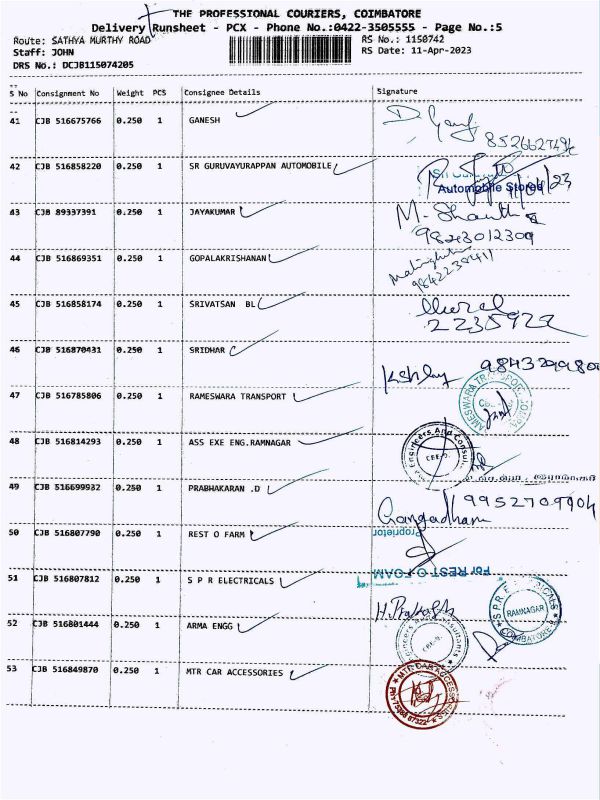 THE PROFESSIONAL COURIERS, COIMBATORE
Delivery Runsheet - PCX - Phone No.:0422-3505555 - Page No.:5
Route: SATHYA MURTHY ROAD
RS No.: 1150742
Staff: JOHN
RS Date: 11-Apr-2023
DRS No.: DCJB115074205
S No Consignment No Weight PCS Consignee Details Signature
41 CJB 516675766 0.250 1 GANESH
8526627494
42 CJB 516858220 0.250 1 SR GURUVAYURAPPAN AUTOMOBILE
11/04/23
Automobile Stores
43 CJB 89337391 0.250 1 JAYAKUMAR
M. Shanthi
9843012309
44 CJB 516869351 0.250 1 GOPALAKRISHANAN
9842238411
45 CJB 516858174 0.250 1 SRIVATSAN BL
2235922
46 CJB 516870431 0.250 1 SRIDHAR
47 CJB 516785806 0.250 1 RAMESWARA TRANSPORT
48 CJB 516814293 0.250 1 ASS EXE ENG.RAMNAGAR
Engineers And Consul
CBE-9.
49 CJB 516699932 0.250 1 PRABHAKARAN .D
9952709904
Gangadharan
50 CJB 516807790 0.250 1 REST O FARM
Proprietor
For REST O FOAM
51 CJB 516807812 0.250 1 S P R ELECTRICALS
RAMNAGAR
COIMBATORE
52 CJB 516801444 0.250 1 ARMA ENGG
CBE-9.
53 CJB 516849870 0.250 1 MTR CAR ACCESSORIES
MTR CAR ACCESSORIES